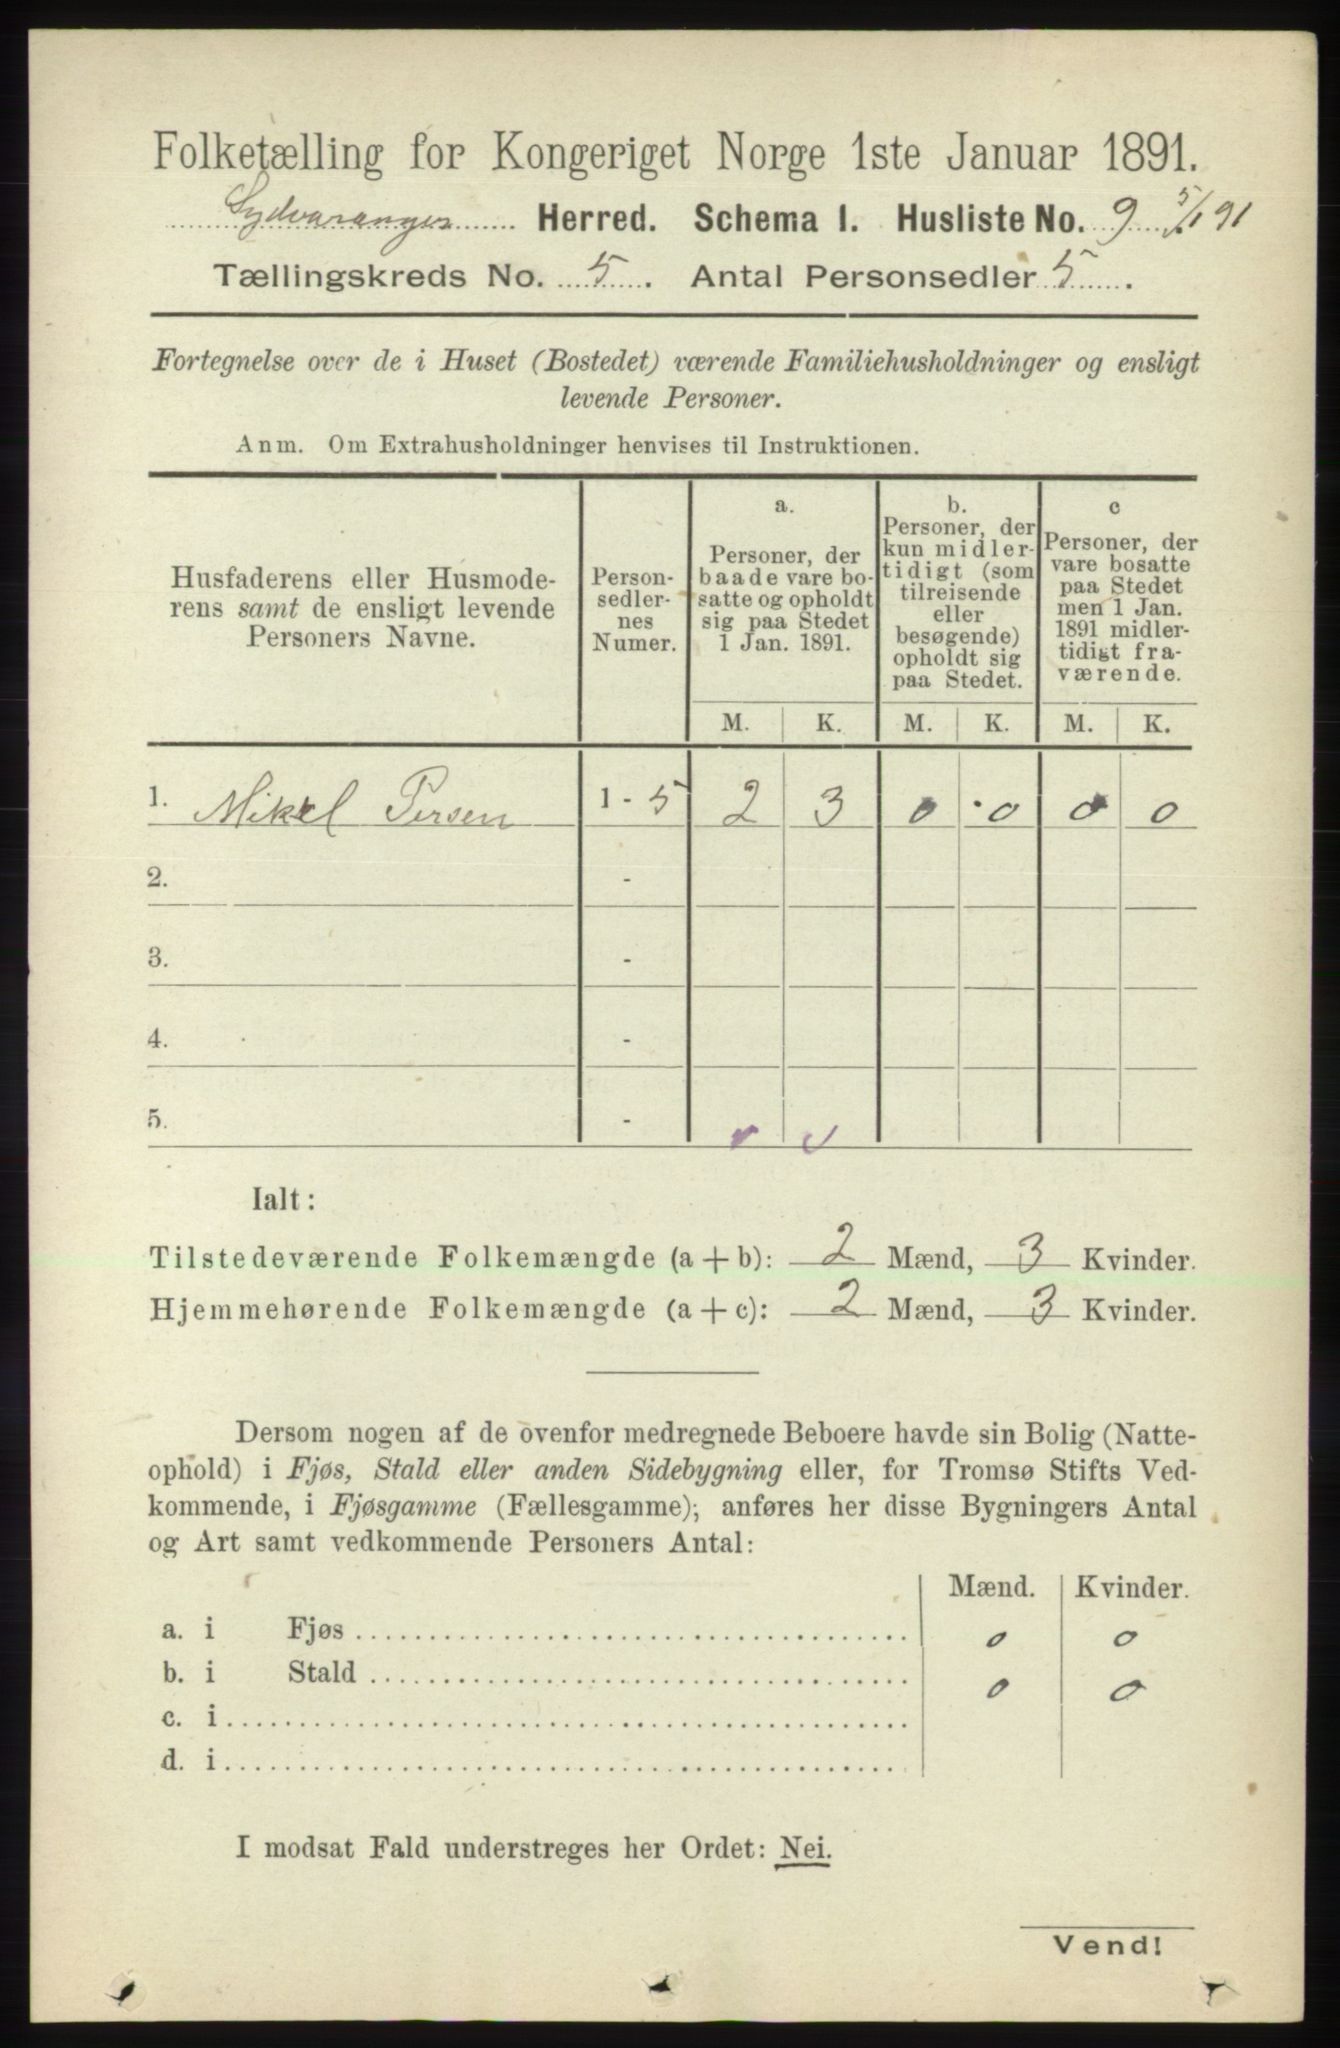 Folketælling for Kongeriget Norge 1ste Januar 1891.
Sydvaranger Herred. Schema I. Husliste No. 9 5/1 91
Tællingskreds No. 5. Antal Personsedler 5.
Fortegnelse over de i Huset (Bostedet) værende Familiehusholdninger og ensligt
levende Personer.
Anm. Om Extrahusholdninger henvises til Instruktionen.
Husfaderens eller Husmode-
rens samt de ensligt levende
Personers Navne.
Person-
sedler-
nes
Numer.
a.
Personer, der
baade vare bo-
satte og opholdt
sig paa Stedet
1 Jan. 1891.
b.
Personer, der
kun midler-
tidigt (som
tilreisende
eller
besøgende)
opholdt sig
paa Stedet.
c
Personer, der
vare bosatte
paa Stedet
men 1 Jan.
1891 midler-
tidigt fra-
værende.
M. K. M. K. M. K.
1. Mikkel Persen 1 - 5 2 3 0 0 0 0
2. -
3. -
4. -
5. -
Ialt:
Tilstedeværende Folkemængde (a + b): 2 Mænd, 3 Kvinder.
Hjemmehørende Folkemængde (a + c): 2 Mænd, 3 Kvinder.
Dersom nogen af de ovenfor medregnede Beboere havde sin Bolig (Natte-
ophold) i Fjøs, Stald eller anden Sidebygning eller, for Tromsø Stifts Ved-
kommende, i Fjøsgamme (Fællesgamme); anføres her disse Bygningers Antal
og Art samt vedkommende Personers Antal:
Mænd. Kvinder.
a. i Fjøs 0 0
b. i Stald 0 0
c. i
d. i
I modsat Fald understreges her Ordet: Nei.
Vend!